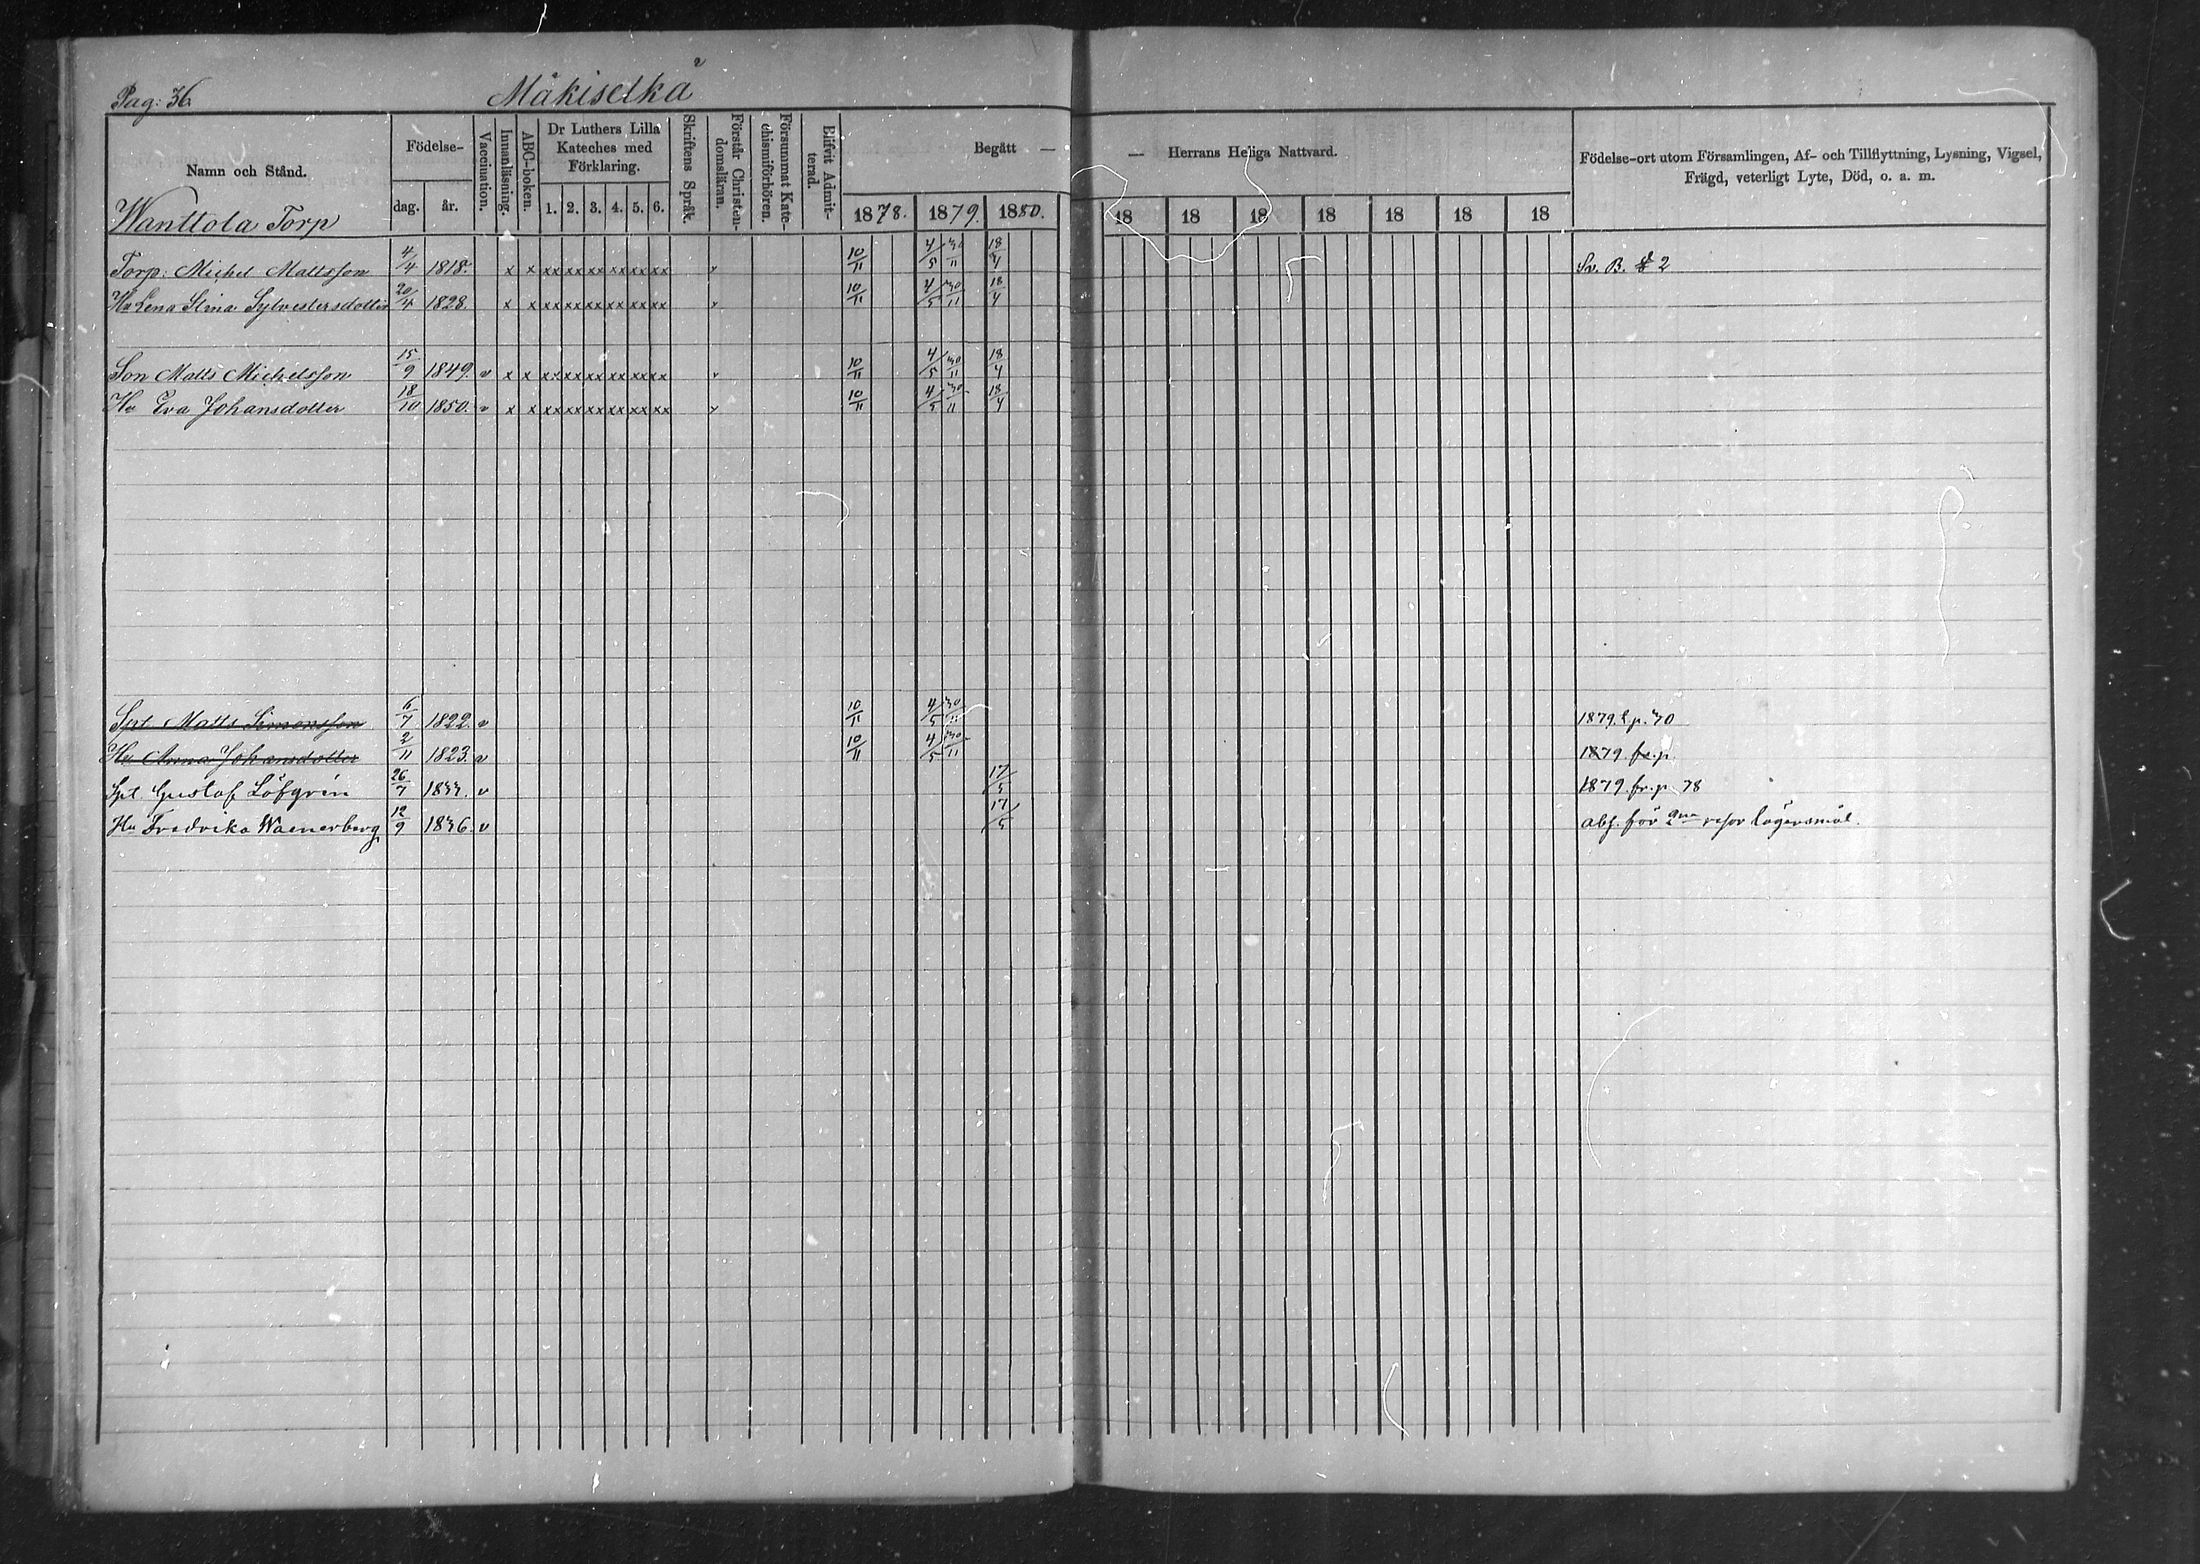 Pag: 36.
Mäkiselkä
Namn och Stånd.
Födelse-
dag.
år.
Vaccination.
Innanläsning.
ABC-boken.
Dr Luthers Lilla
Kateches med
Förklaring.
1. 2. 3. 4. 5. 6.
Skriftens Språk.
Förstår Christen-
domsläran.
Försummat Kate-
chismiförhören.
Blifvit Admit-
terad.
Begått —
— Herrans Heliga Nattvard.
1878. 1879. 1880. 18 18 18 18 18 18 18
Födelse-ort utom Församlingen, Af- och Tillflyttning, Lysning, Vigsel,
Frägd, veterligt Lyte, Död, o. a. m.
Wanttola Torp
Torp: Michel Mattsson 4/4 1818. x x xx xx xx xx xx xx v 10/11 4/5 30/11 18/4 Sv. B. 2
Hu Lena Stina Sylvestersdotter 20/4 1828. x x xx xx xx xx xx xx v 10/11 4/5 30/11 18/4
Son Matts Michelsson 15/9 1849. v x x xx xx xx xx xx xx v 10/11 4/5 30/11 18/4
Hu Eva Johansdotter 18/10 1850. v x x xx xx xx xx xx xx v 10/11 4/5 30/11 18/4
Spt. Matts Simonsson 6/7 1822. v 10/11 4/5 30/11 1879. t.p. 30
Hu Anna Johansdotter 2/11 1823. v 10/11 4/5 30/11 1879. fr. p.
Spt. Gustaf Löfgrén 26/7 1833. v 17/5 1879. fr. p. 78
Hu Fredrika Wacnerberg 12/9 1836. v 17/5 abs. för resor lägersmål.